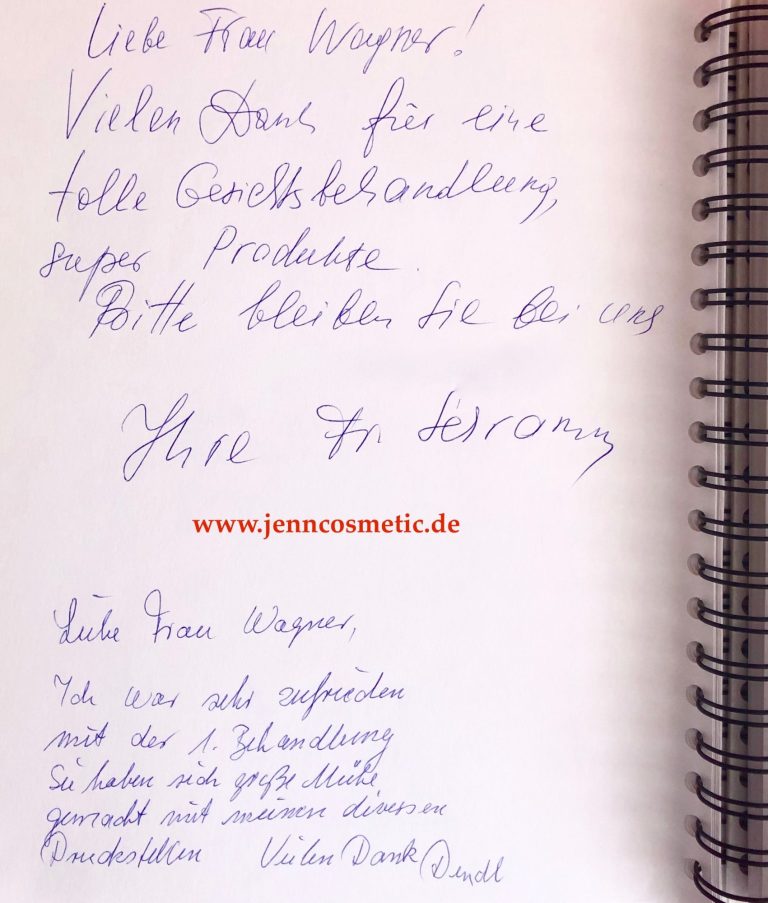 Liebe Frau Wagner!
Vielen Dank für eine
tolle Gesichtsbehandlung,
super Produkte.
Bitte bleiben Sie bei uns
Ihre Fr.
www.jenncosmetic.de
Liebe Frau Wagner,
Ich war sehr zufrieden
mit der 1. Behandlung
Sie haben sich große Mühe
gemacht mit meinen diversen
Druckstellen Vielen Dank